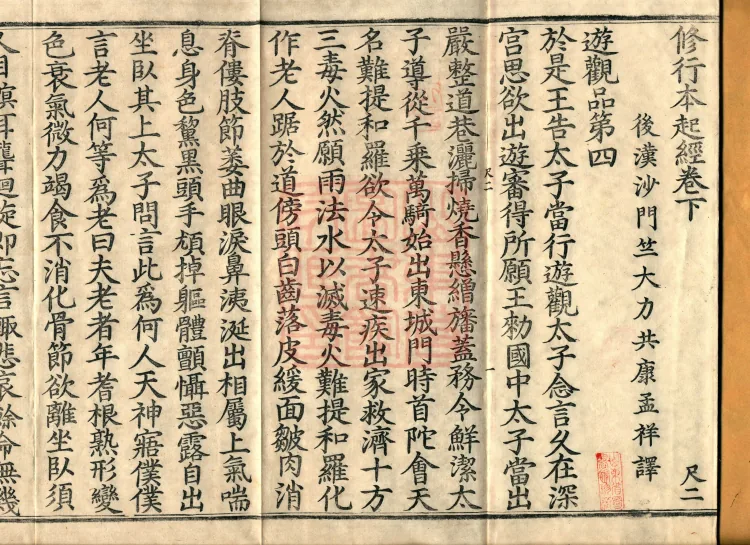 修行本起經卷下
尺二
後漢沙門竺大力共康孟祥譯
遊觀品第四
於是王告太子當行遊觀太子念言久在深
宮思欲出遊審得所願王勑國中太子當出
嚴整道巷灑掃燒香懸繒旛蓋務令鮮潔太
子導從千乘萬騎始出東城門時首陀會天
名難提和羅欲令太子速疾出家救濟十方
三毒火然願雨法水以滅毒火難提和羅化
作老人踞於道傍頭白齒落皮緩面皺肉消
脊僂肢節萎曲眼淚鼻洟涎出相屬上氣喘
息身色黧黑頭手頄掉軀體顫懾惡露自出
坐臥其上太子問言此為何人天神寤僕僕
言老人何等為老曰夫老者年耆根熟形變
色衰氣微力竭食不消化骨節欲離坐臥須
人目瞑耳聾迴旋即忘言輒悲哀餘命無幾